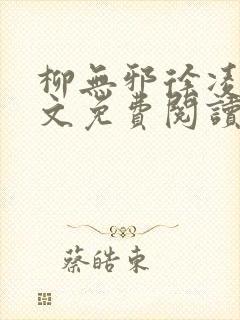 柳無邪徐凌
文免費閱讀
蔡皓東